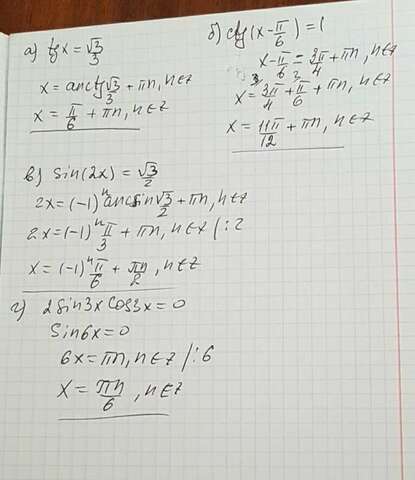 а) tg x = √3/3
x = arctg √3/3 + πn, n∈z
x = π/6 + πn, n∈z
б) ctg(x - π/6) = 1
x - π/6 = 3π/4 + πn, n∈z
x = 3π/4 + π/6 + πn, n∈z
x = 11π/12 + πn, n∈z
в) sin(2x) = √3/2
2x = (-1)ⁿ arcsin √3/2 + πn, n∈z
2x = (-1)ⁿ π/3 + πn, n∈z /:2
x = (-1)ⁿ π/6 + πn/2, n∈z
г) 2sin3x cos3x = 0
sin6x = 0
6x = πn, n∈z /:6
x = πn/6, n∈z